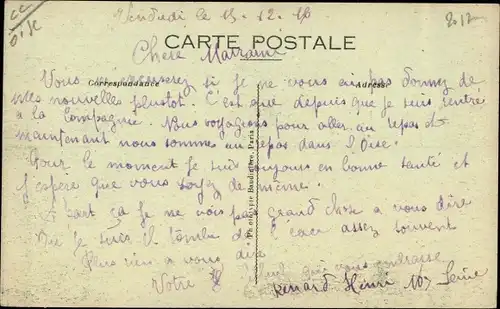 Vendredi le 15-12-16
CARTE POSTALE
Chere Marraine
Correspondance
Adresse
Vous m'excuserez si je ne vous ai pas donnez de
mes nouvelles plustot. C'est que depuis que je suis rentré
a la compagnie. Nous voyageons pour aller au repos et
maintenant nous somme au repos dans l'Oise.
Pour le moment je suis toujours en bonne santé et
j'espère que vous soyez de même.
A part ça je ne vois pas grand chose a vous dire
Que je suis il tombe de l'eau assez souvent
Plus rien a vous dire
qui vous embrasse
Votre
Renard Henri 107
Phototypie Baudinière, Paris